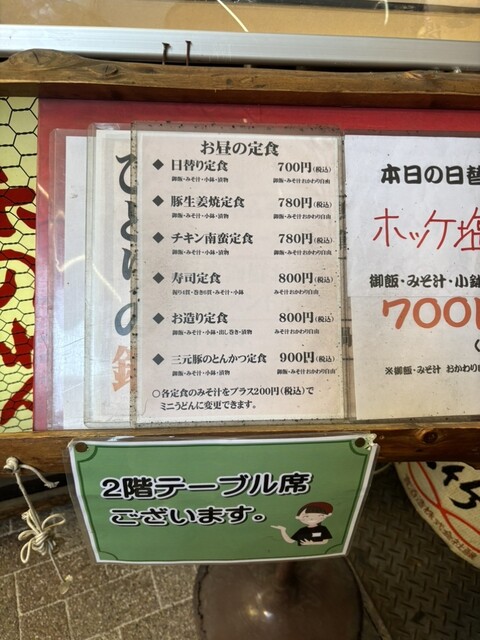 お昼の定食
◆ 日替り定食 700円(税込)
御飯・みそ汁・小鉢・漬物 御飯・みそ汁おかわり自由
◆ 豚生姜焼定食 780円(税込)
御飯・みそ汁・小鉢・漬物 御飯・みそ汁おかわり自由
◆ チキン南蛮定食 780円(税込)
御飯・みそ汁・小鉢・漬物 御飯・みそ汁おかわり自由
◆ 寿司定食 800円(税込)
握り4貫・巻き6貫・みそ汁・小鉢 みそ汁おかわり自由
◆ お造り定食 800円(税込)
御飯・みそ汁・小鉢・出し巻き・漬物 御飯・みそ汁おかわり自由
◆ 三元豚のとんかつ定食 900円(税込)
御飯・みそ汁・小鉢・漬物 御飯・みそ汁おかわり自由
○各定食のみそ汁をプラス200円(税込)で
ミニうどんに変更できます。
本日の日替
ホッケ塩
御飯・みそ汁・小鉢
700円
※御飯・みそ汁 おかわり自
2階テーブル席
ございます。